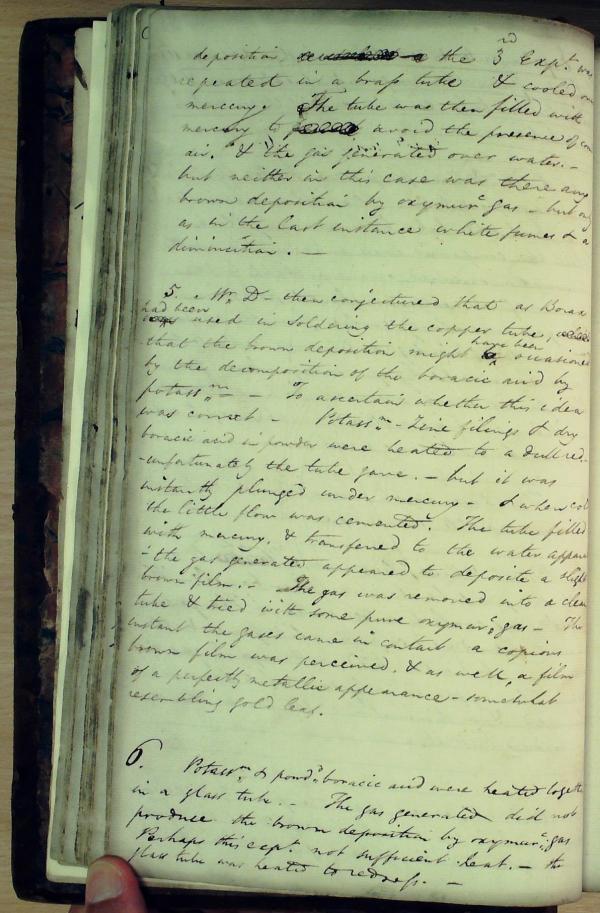 deposition the 3rd Expt. was
repeated in a brass tube & cooled over
mercury. The tube was then filled with
mercury to avoid the presence of com
air. & the gas generated over water.—
but neither in this case was there any
brown deposition by oxymurc. gas – but only
as in the last instance white fumes & a
diminution. —
5. Mr. D– then conjectured that as Borax
had been
used in soldering the copper tube,
have been
that the brown deposition might occasioned
by the decomposition of the boracic acid by
potassm. — To ascertain whether this idea
was correct – Potassm. – Zinc filings & dry
boracic acid in powder were heated to a dull red.–
-unfortunately the tube gave. – but it was
instantly plunged under mercury – & when cold
the little flaw was cemented. The tube filled
with mercury. & transferred to the water appara
- the gas generated appeared to deposite a slight
brown film. – The gas was removed into a clean
tube & tried with some pure oxymurc. gas – The
instant the gases came in contact a copious
brown film was perceived. & as well, a film
of a perfectly metallic appearance – somewhat
resembling gold leaf.
6. Potassm. & powdd. boracic acid were heated togethr
in a glass tube. – The gas generated did not
produce the brown deposition by oxymurc. gas
Perhaps this expt. not sufficient heat. – the
glass tube was heated to redness. –